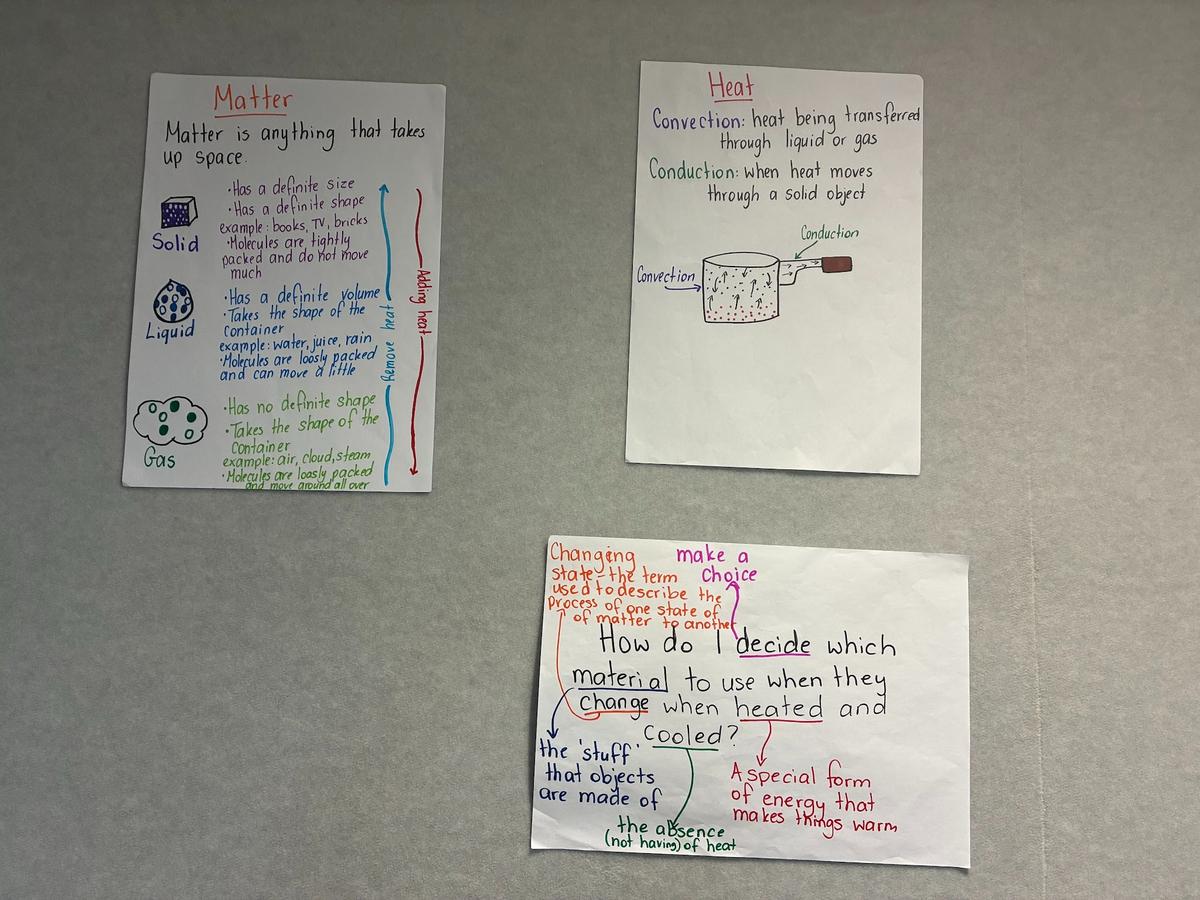 Matter
Matter is anything that takes
up space.
Solid
·Has a definite size
·Has a definite shape
example: books, TV, bricks
·Molecules are tightly
packed and do not move
much
Liquid
·Has a definite volume
·Takes the shape of the
container
example: water, juice, rain
·Molecules are loosly packed
and can move a little
Gas
·Has no definite shape
·Takes the shape of the
container
example: air, cloud, steam
·Molecules are loasly packed
and move around all over
Remove heat
Adding heat
Heat
Convection: heat being transferred
through liquid or gas
Conduction: when heat moves
through a solid object
Conduction
Convection
Changing
state-the term
used to describe the
process of one state of
of matter to another
make a
choice
How do I decide which
material to use when they
change when heated and
cooled?
the 'stuff'
that objects
are made of
the absence
(not having) of heat
A special form
of energy that
makes things warm